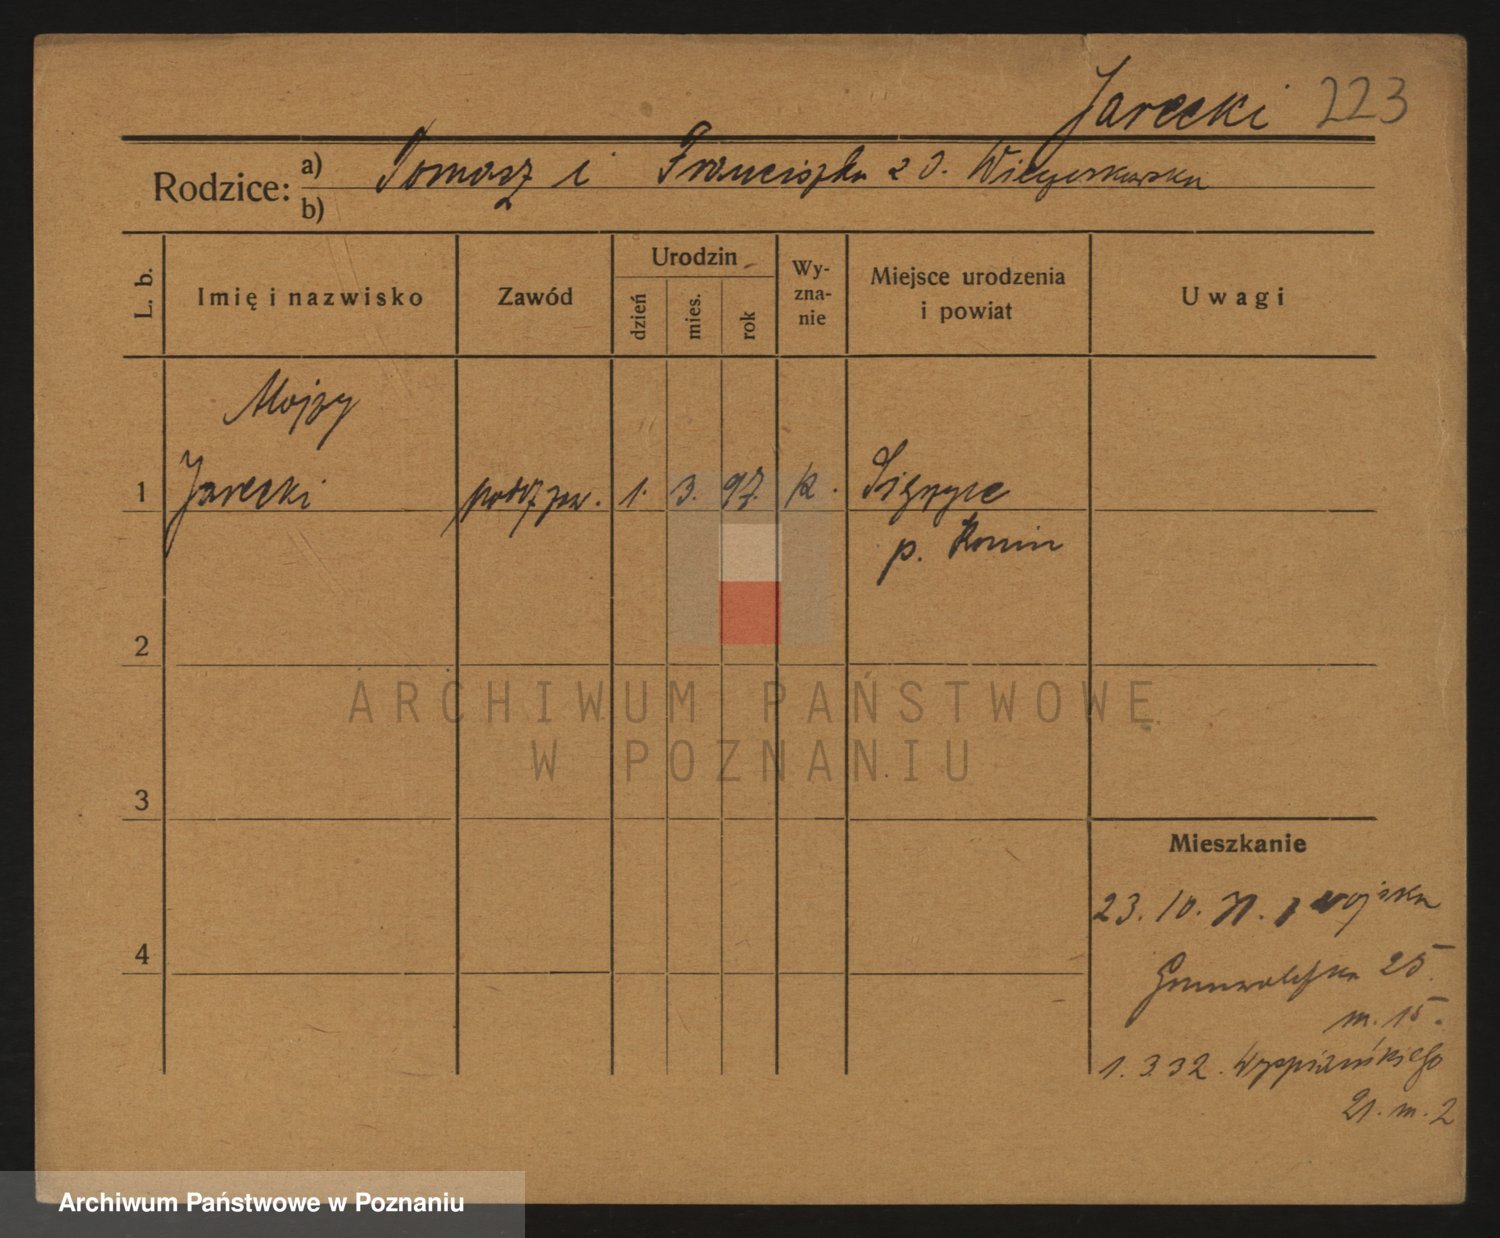 Jarecki 223
Rodzice: a) Tomasz i Franciszka z d.
b)
L. b.
Imię i nazwisko
Zawód
Urodzin
dzień
mies.
rok
Wy-
zna-
nie
Miejsce urodzenia
i powiat
Uwagi
Alojzy
1 Jarecki 1. 3. 97. k.
p. Konin
2
ARCHIWUM PAŃSTWOWE
W POZNANIU
3
Mieszkanie
23. 10. 31. z wojska
4
Grunwaldzka 25.
m. 15.
1. 3 32. Wyspiańskiego
21. m. 2
Archiwum Państwowe w Poznaniu